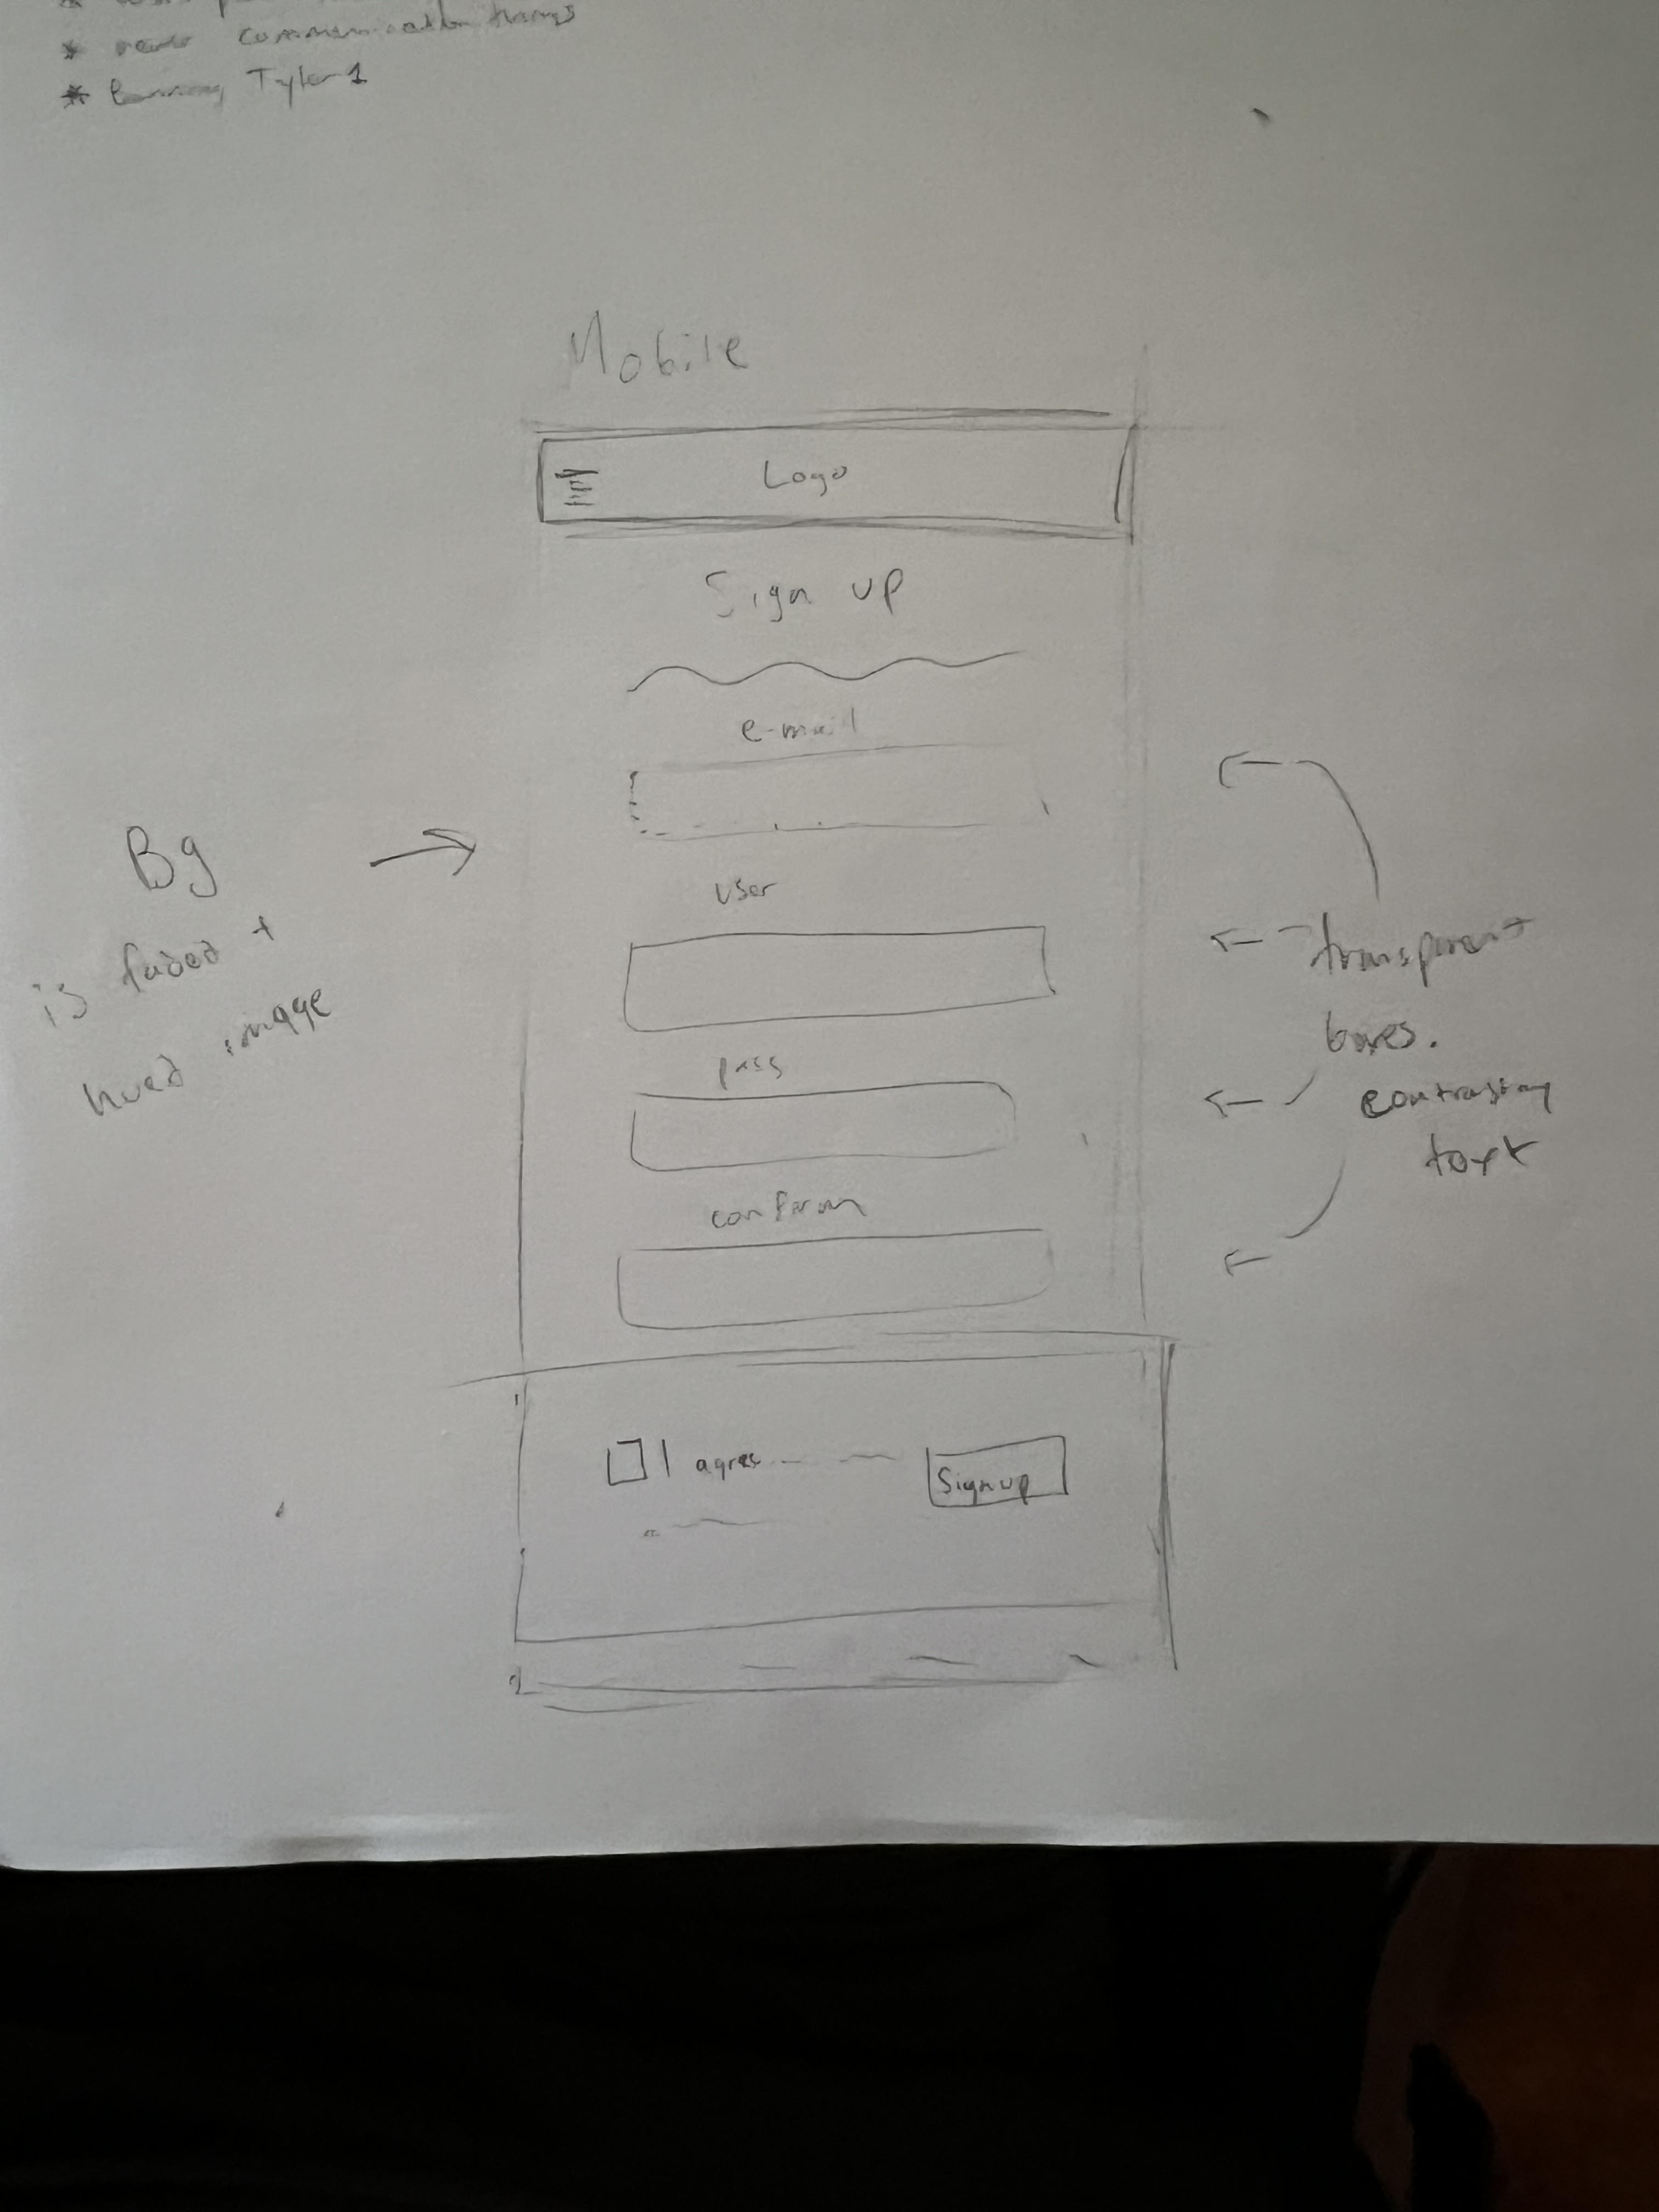 * communication things
* Tyler 1
Mobile
Logo
Sign up
e-mail
user
pass
confirm
I agree
Signup
Bg
is faded +
hued image
transparent
boxes.
contrasting
text